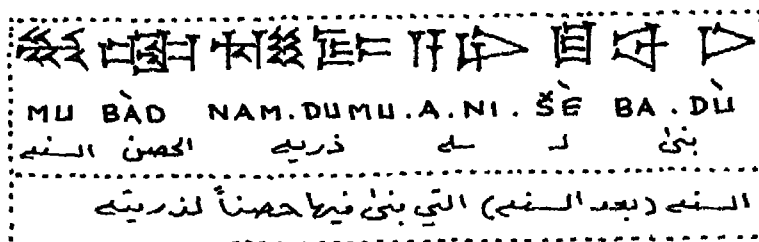 MU BÀD NAM.DUMU.A.NI.ŠÈ BA.DÙ
السنه الحصن ذريه ـه لـ بنىٰ
السنه (بعد السنه) التي بنىٰ فيها حصناً لذريته